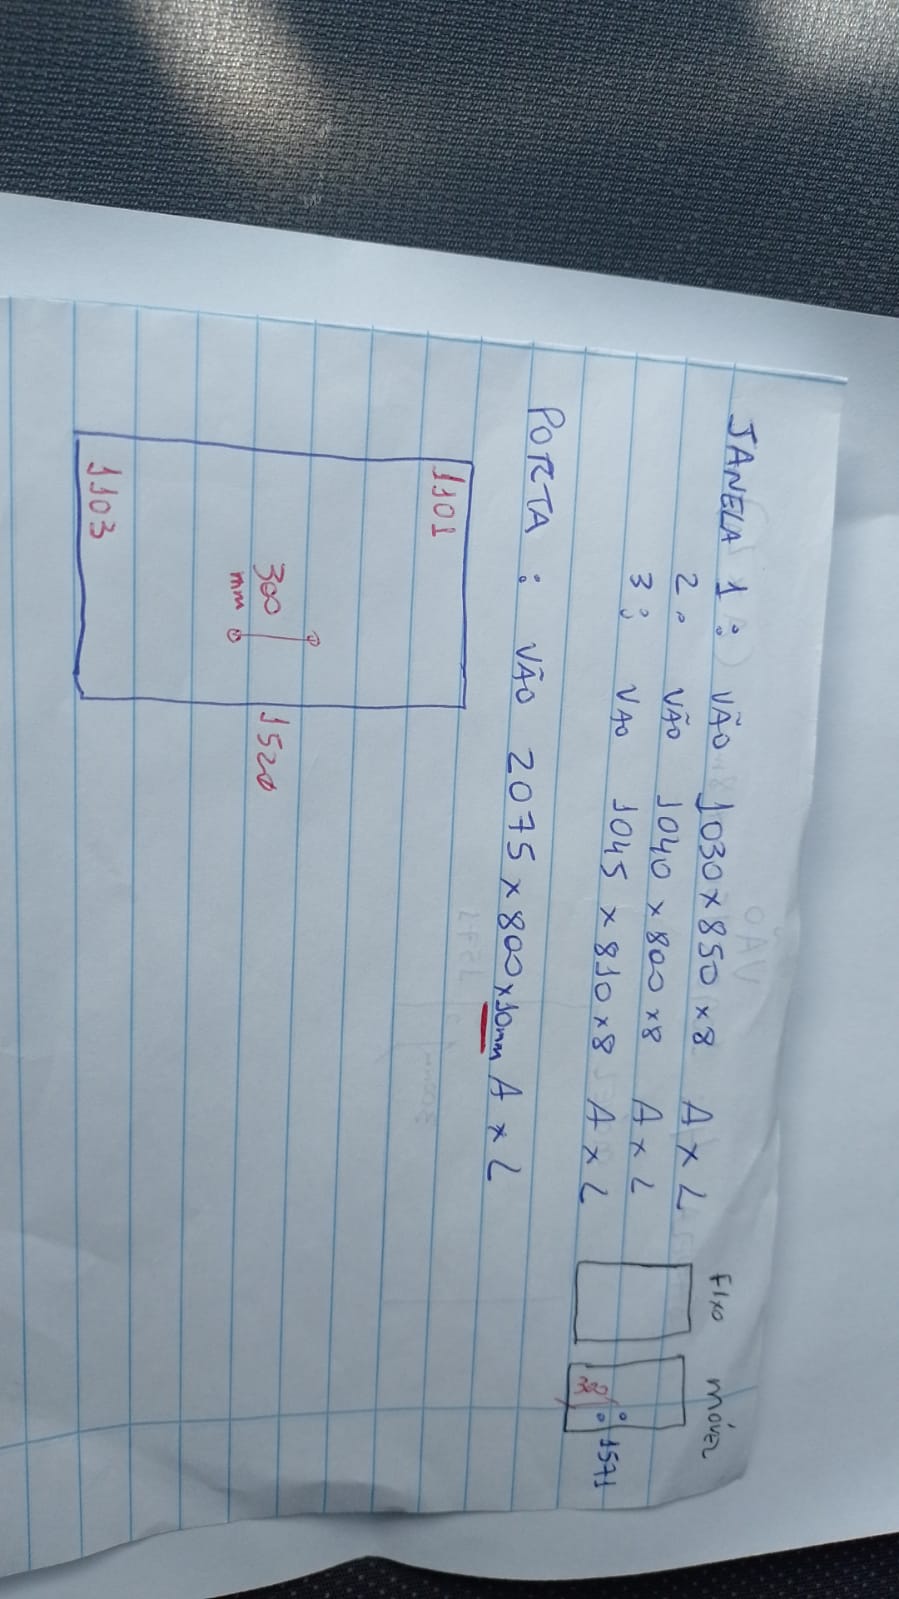 JANELA 1 : VÃO 1030 x 850 x 8 A x L
2 : VÃO 1040 x 800 x 8 A x L
3 : VAO 1045 x 810 x 8 A x L
FIXO MÓVEL
1571
PORTA : VÃO 2075 x 800 x 10mm A x L
1101
300
mm
1520
1103